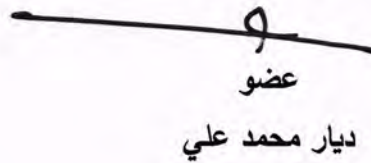 عضو
ديار محمد علي